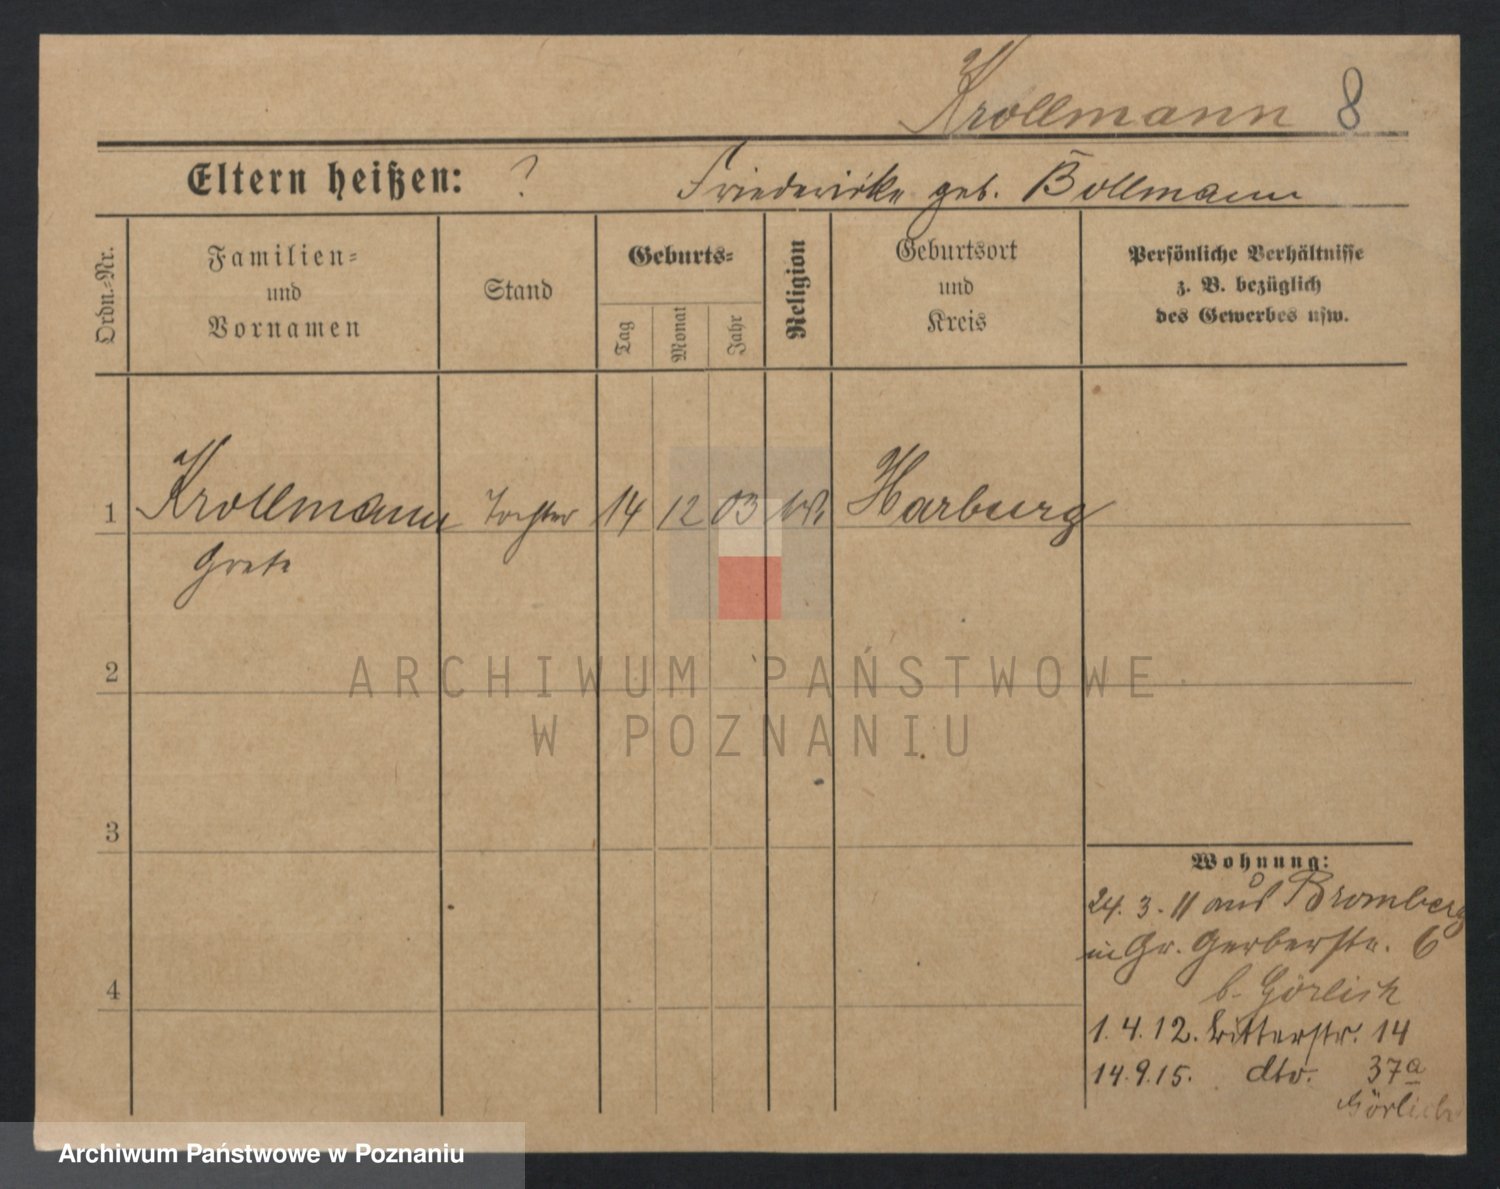 Krollmann 8
Eltern heißen: ? Friederike geb. Bollmann
Ordn.=Nr.
Familien=
und
Vornamen
Stand
Geburts=
Tag
Monat
Jahr
Religion
Geburtsort
und
Kreis
Persönliche Verhältnisse
z. B. bezüglich
des Gewerbes usw.
1 Krollmann Tochter 14 12 03 Harburg
Grete
2
3
4
Wohnung:
24. 3. 11 aus Bromberg
in Gr. Gerberstr. 6
b. Görlich
1. 4. 12. Ritterstr. 14
14. 9. 15. dto. 37a
Görlich
ARCHIWUM PAŃSTWOWE
W POZNANIU
Archiwum Państwowe w Poznaniu